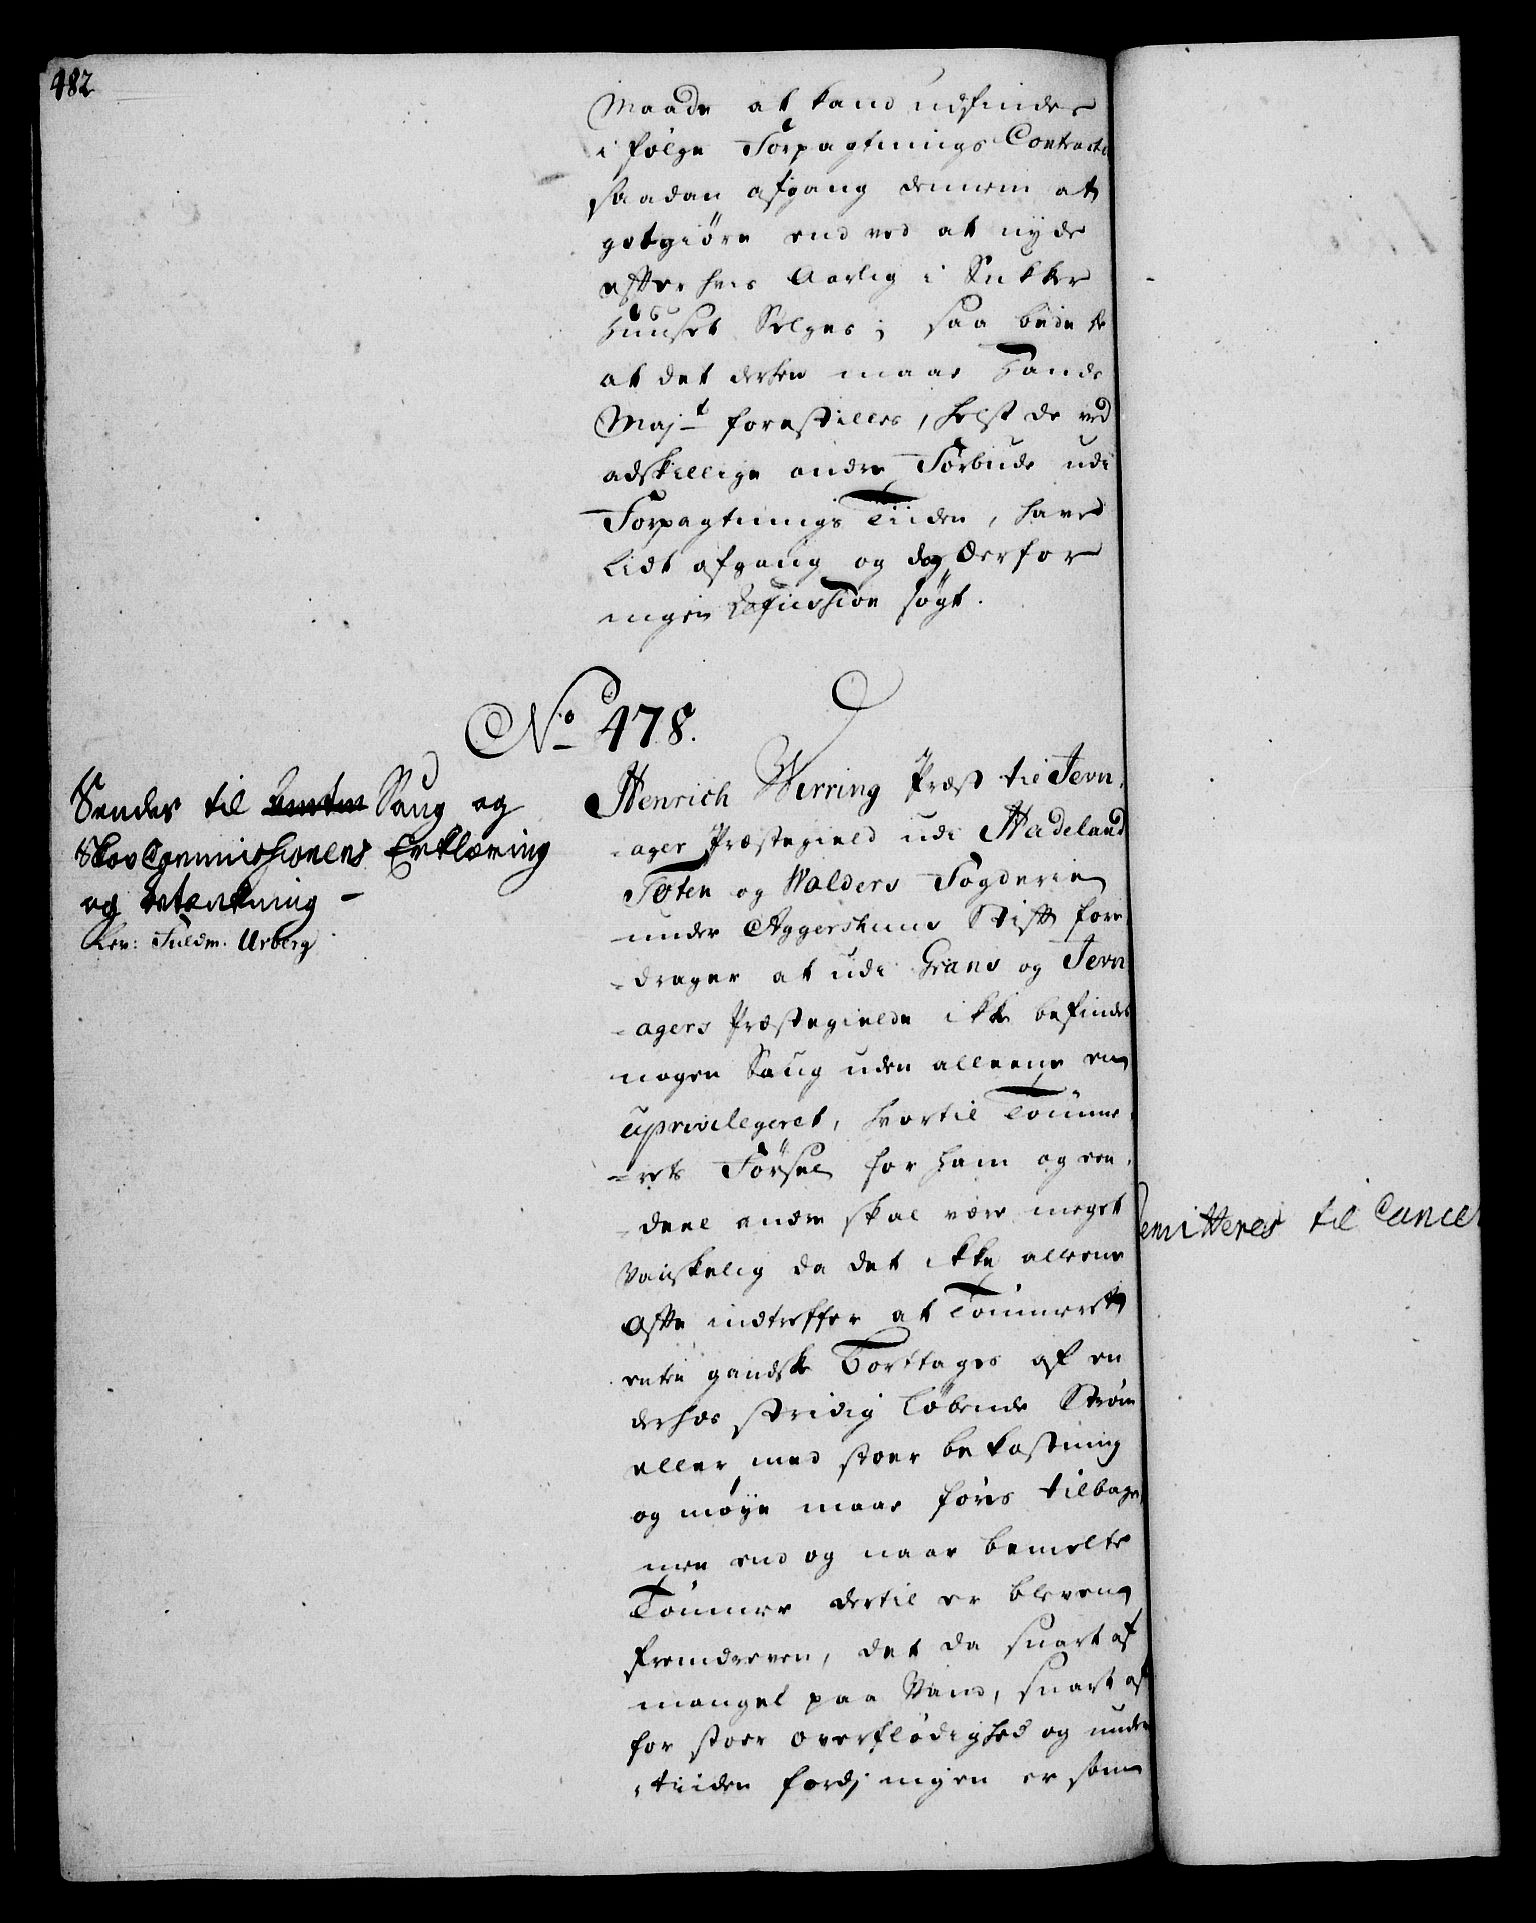 482
Maade at kand udfindes
i følge Forpagtnings Contracten
saadan afgang dennem at
gotgiøre end ved at nyde
efter hvis Aarlig i Sukker
Huuset Selges; saa bede de
at det derhen maae Hands
Maj.t forestilles, helst de ved
adskillige andre Forbude udi
Forpagtnings Tiiden, haver
Lidt afgang og dog derfor
ingen Refussion søgt.
No 478.
Sendes til Saug og
Skov Commissionens Erklæring
og betænkning
Lev: Fuldm. Urberg
Henrich Werring Præst til Jevn-
ager Præstegield udi Hadeland
Toten og Walders Fogderie
under Aggershuus Stift fore
drager at udi Grans og Jevn
agers Præstegielde ikke befindes
nogen Saug uden alleene en
uprivilegeret, hvortil Tømme-
rets Førsel for ham og een
deel andre skal være meget
Vanskelig da det ikke alleene
Ofte indtreffer at Tømmeret
enten gandske Borttages af en
derhos stridig Løbende Strøm
eller med stoer bekostning
og møye maae føres tilbage,
men end og naar bemelte
Tømmer dertil er bleven
fremdreven, det da snart af
mangel paa Vand, snart af
for stoer overflødighed og under
tiiden fordj ingen er som
emitteres til Cancel